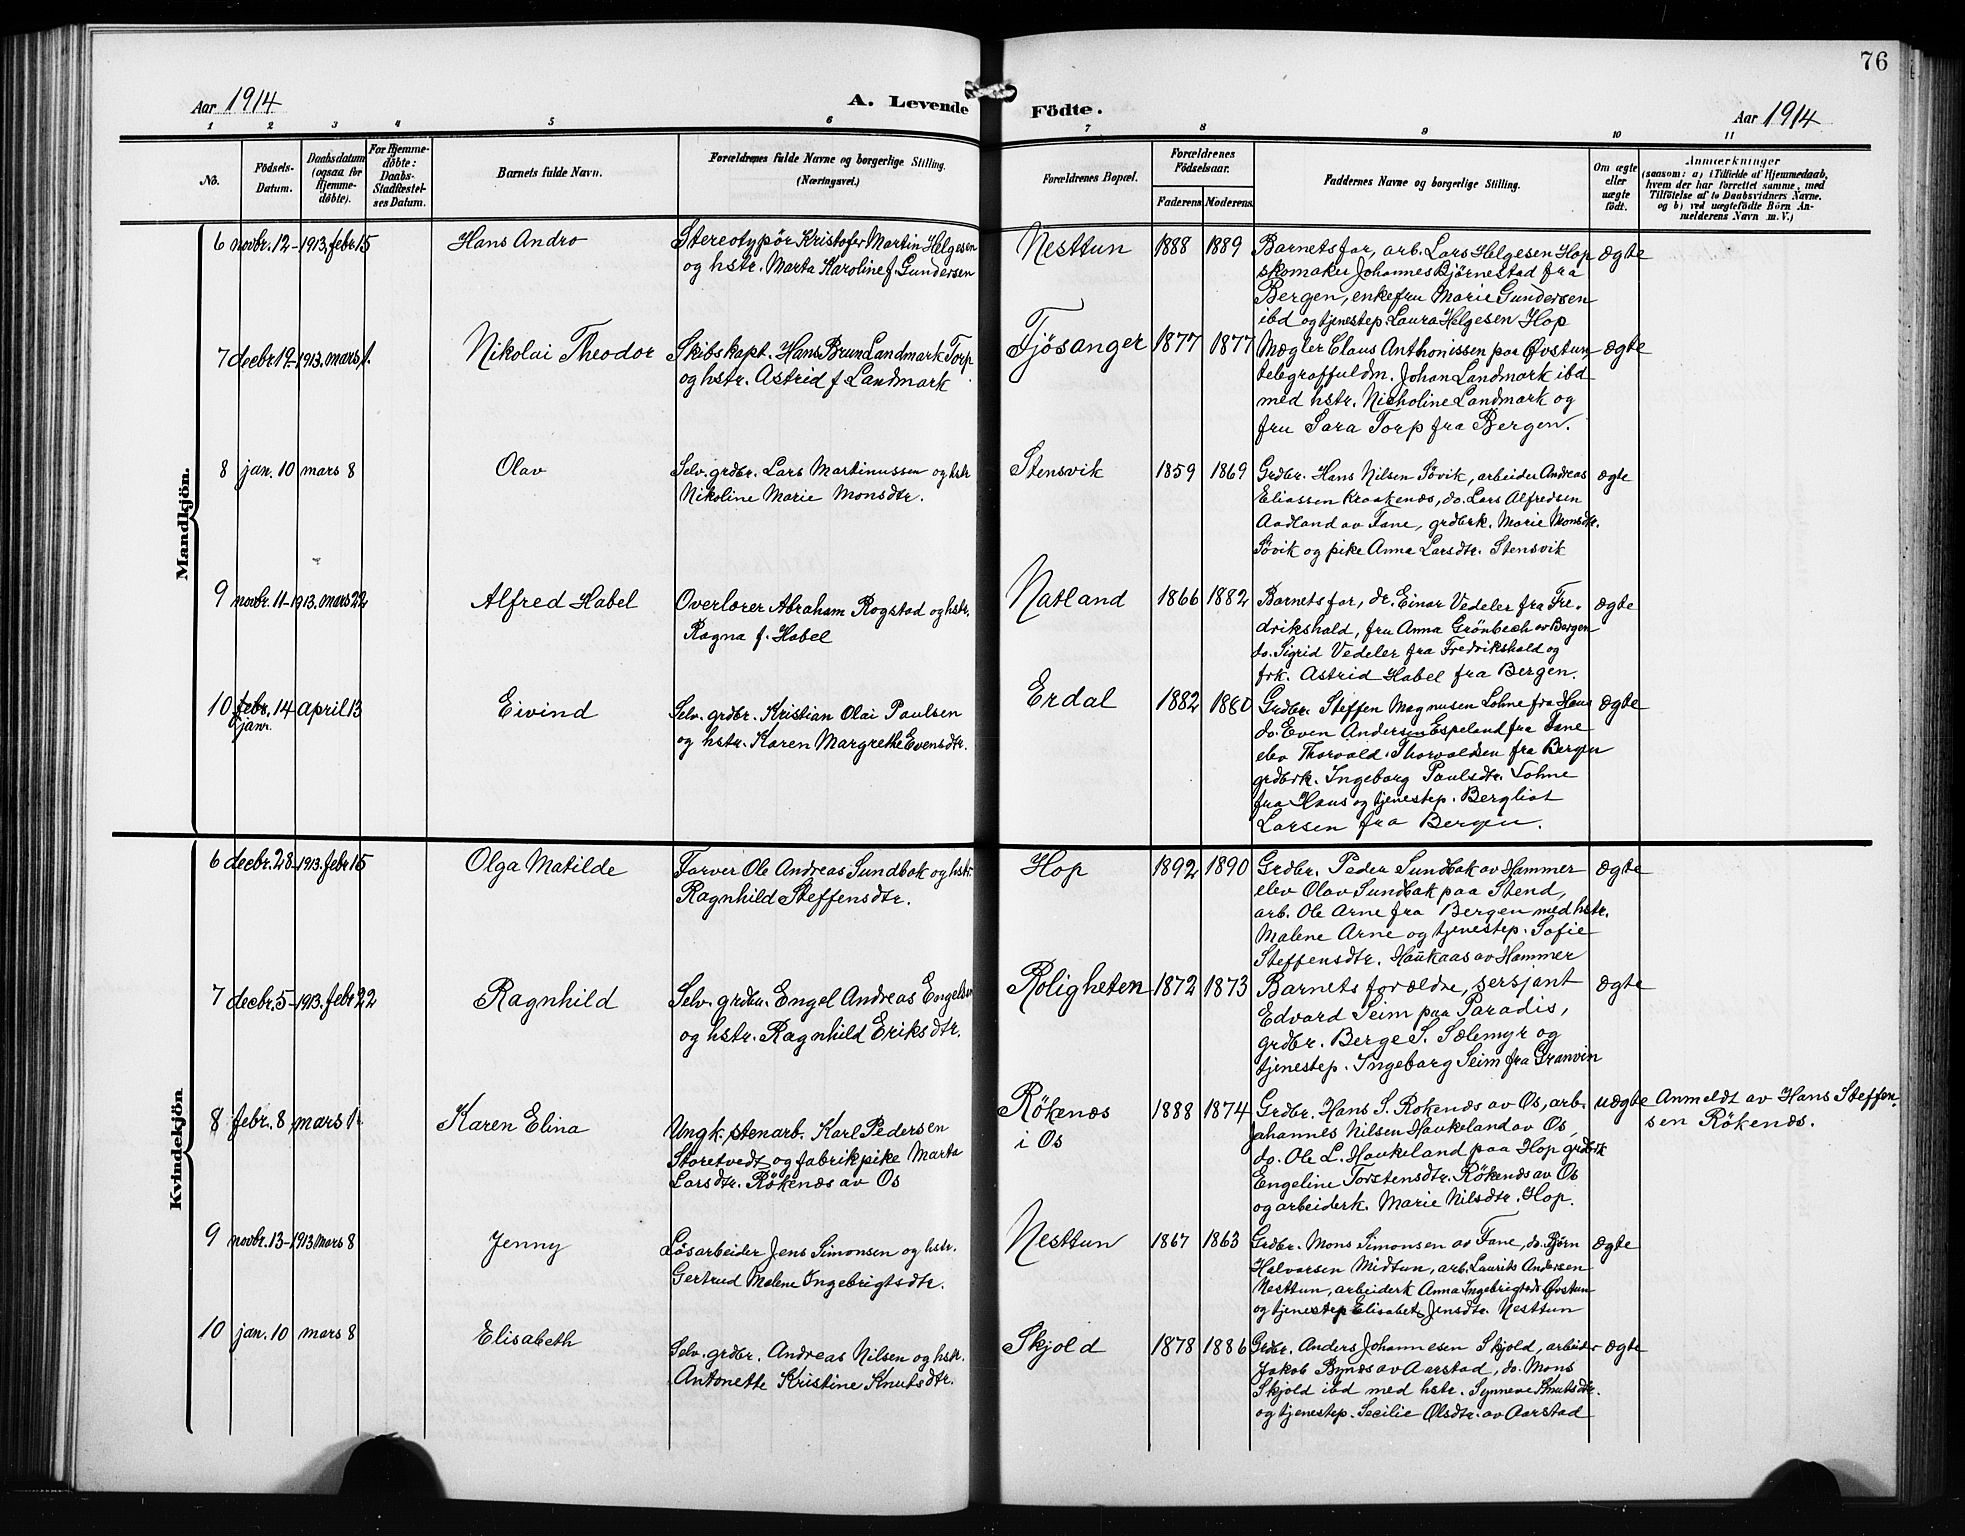 76
Aar 1914
A. Levende
Födte.
Aar 1914
1 2 3 4 5 6 7 8 9 10 11
No.
Födsels-
Datum.
Daabsdatum
(ogsaa for
Hjemme-
døbte).
For Hjemme-
døbte:
Daabs-
Stadfæstel-
ses Datum.
Barnets fulde Navn.
Forældrenes fulde Navne og borgerlige Stilling.
(Næringsvei.)
Forældrenes Bopæl.
Forældrenes
Födselsaar.
Faderens
Moderens.
Faddernes Navne og borgerlige Stilling.
Om ægte
eller
uægte
födt.
Anmærkninger
(saasom: a) i Tilfælde af Hjemmedaab,
hvem der har forrettet samme, med
Tilföielse af to Daabsvidners Navne.
og b) ved uægtefödte Börn An-
melderens Navn m. V.)
Mandkjön.
6 novbr. 12-1913. febr 15
Hans Andro
Stereotypör Kristofer Martin Helgesen
og hstr. Marta Karoline f. Gundersen
Nesttun
1888 1889
Barnets far, arb. Lars Helgesen Hop
skomaker Johannes Bjørnestad fra
Bergen, enkefru Marie Gundersen
ibd og tjenestep. Laura Helgesen Hop
ægte
7 decbr. 12-1913. mars 1.
Nikolai Theodor
Skibskapt. Hans Brun Landmark Torp
og hstr. Astrid f Landmark
Fjösanger
1877 1877
Mægler Claus Anthonissen paa Øvstun
telegraffuldm. Johan Landmark ibd
med hstr. Nicholine Landmark og
fru Sara Torp fra Bergen.
ægte
8 jan. 10 mars 8
Olav
Selv. grdbr. Lars Martinussen og hstr
Nikoline Marie Monsdtr.
Stensvik
1859 1869
Grdbr. Hans Nilsen Sövik, arbeider Andreas
Eliassen Kraakenes, do. Lars Alfredsen
Aadland av Fane, grdbrk. Marie Monsdtr.
Sövik og pike Anna Larsdtr. Stensvik
ægte
9 novbr. 11-1913. mars 22
Alfred Habel
Overlærer Abraham Rogstad og hstr.
Ragna f. Habel
Natland
1866 1882
Barnets far, dr. Einar Vedeler fra Fre-
drikshald, fru Anna Grönbech av Bergen
do. Sigrid Vedeler fra Fredrikshald og
frk. Astrid Habel fra Bergen.
ægte
10 febr. 14 april 13
janr.
Eivind
Selv. grdbr. Kristian Olai Paulsen
og hstr. Karen Margrethe Evensdtr.
Erdal
1882 1880
Grdbr. Steffen Magnusen Lohne fra Haus
do. Even Andersen Espeland fra Fane
elev Thorvald Thorvaldsen fra Bergen
grdbrk. Ingeborg Paulsdtr. Lohne
fra Haus og tjenestep. Bergliot
Larsen fra Bergen.
ægte
Kvindekjön
6 decbr. 28-1913. febr 15
Olga Matilde
Farver Ole Andreas Sundbak og hstr
Ragnhild Steffensdtr.
Hop
1892 1890
Grdbr. Peder Sundbak av Hammer
elev Olav Sundbak paa Stend,
arb. Ole Arne fra Bergen med hstr.
Malene Arne og tjenestep. Sofie
Steffensdtr. Haukaas av Hammer
ægte
7 decbr. 5-1913. febr 22
Ragnhild
Selv. grdbr. Engel Andreas Engelsen
og hstr. Ragnhild Eriksdtr.
Roligheten
1872 1873
Barnets forældre, sersjant
Edvard Seim paa Paradis,
grdbr. Berge S. Sælemyr og
tjenestep. Ingeborg Seim fra Granvin
ægte
8 febr. 8 mars 1.
Karen Elina
Ungk. stenarb. Karl Pedersen
Storetvedt og fabrikpike Marta
Larsdtr. Rökenes av Os
Rökenes
i Os
1888 1874
Grdbr. Hans S. Rokenes av Os, arb.
Johannes Nilsen Haukeland av Os,
do. Ole L. Haukeland paa Hop grdbrk
Engeline Torstensdtr. Rökenes av Os
og arbeiderk. Marie Nilsdtr. Hop.
uægte
Anmeldt av Hans Steffen-
sen Rökenes.
9 novbr. 13-1913 mars 8
Jenny
Lösarbeider Jens Simonsen og hstr.
Gertrud Malene Ingebrigtsdtr.
Nesttun
1867 1863
Grdbr. Mons Simonsen av Fane, do. Björn
Halvorsen Midtun, arb. Laurits Andersen
Nesttun, arbeiderk Anna Ingebrigtsdt Øvstun
og tjenestep Elisabet Jensdtr. Nesttun
ægte
10 jan. 10 mars 8
Elisabeth
Selv. grdbr. Andreas Nilsen og hstr.
Antonette Kristine Knutsdtr.
Skjold
1878 1886
Grdbr. Anders Johannesen Skjold, arbeider
Jakob Bynes av Aarstad, do. Mons
Skjold ibd med hstr. Synneve Knutsdtr.
og tjenestep. Secilie Olsdtr. av Aarstad
ægte